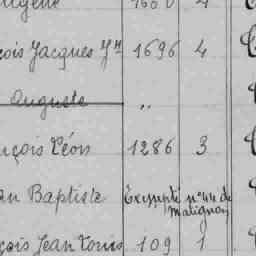 çois Jacques Jn 1696 4
Auguste "
nçois Léon 1286 3
an Baptiste Exempté n°44 de
Matignon
çois Jean Louis 109 1